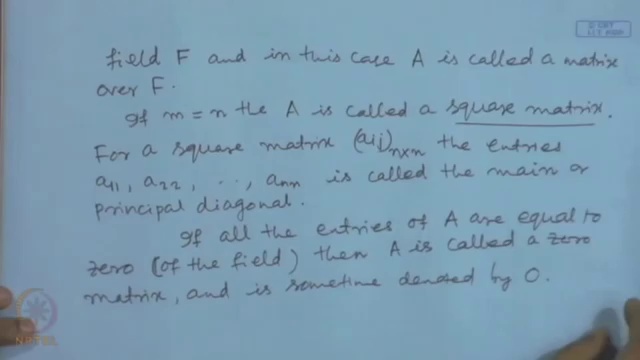 field F and in this case A is called a matrix
over F.
If m = n the A is called a square matrix.
For a square matrix (aij)n×n the entries
a11, a22, .., ann is called the main or
principal diagonal.
If all the entries of A are equal to
zero (of the field) then A is called a zero
matrix, and is sometime denoted by O.
NPTEL